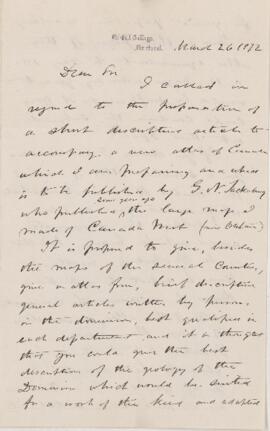 McGill College,
Montreal.
March 26 1872
Dear Sir
I called in
regard to the preparation of
a short descriptive article to
accompany a new atlas of Canada
which I am preparing and which
is to be published by G. N. Tackabury
some years ago
who published the large map I
made of Canada West (now Ontario)
It is proposed to give, besides
the maps of the several Counties,
given in atlas form, brief descriptive
general articles written by persons
in the dominion, best qualified in
each department and it is thought
that you could give the best
description of the geology of the
Dominion which would be suited
for a work of the kind and adapted